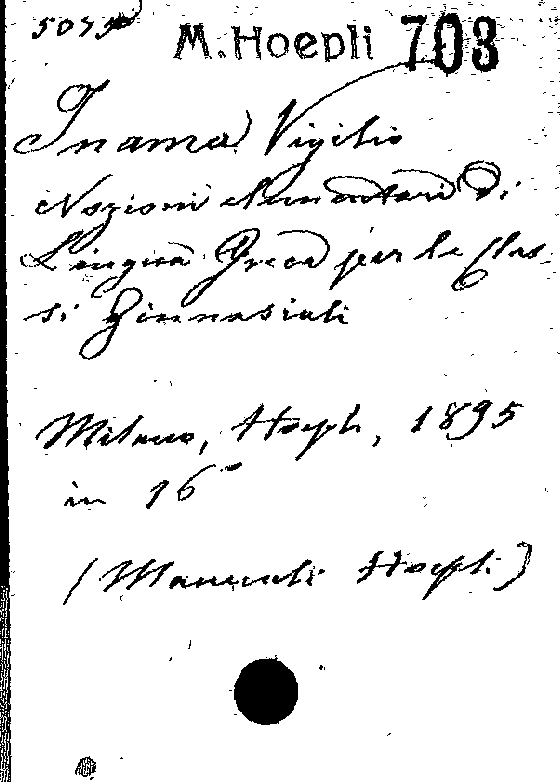 5075
M. Hoepli 703
Inama Vigilio
Nozioni elementari di
Lingua Greca per le Clas-
si Ginnasiali
Milano, Hoepli, 1895
in 16°
(Manuali Hoepli)